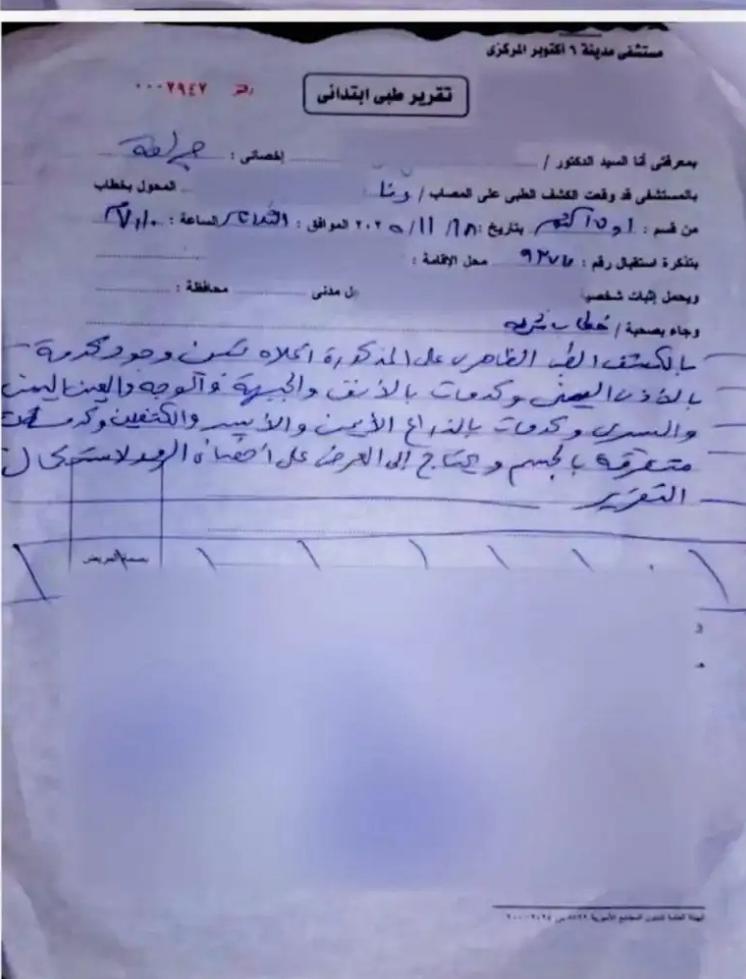 مستشفى مدينة ٦ أكتوبر المركزى
تقرير طبى ابتدائى
رقم ٠٠٠٢٩٤٧
بمعرفتى أنا السيد الدكتور / إخصائى : جراحة
بالمستشفى قد وقعت الكشف الطبى على المصاب / المحول بخطاب
من قسم : أول أكتوبر بتاريخ : ١٨ /١١/ ٢٠٢٥ الموافق : الثلاثاء الساعة :
بتذكرة استقبال رقم : محل الإقامة :
ويحمل إثبات شخصي ل مدنى محافظة :
وجاء بصحبة / خطاب شرطه
بالكشف الطبى الظاهرى على المذكورة أعلاه تبين وجود كدمة
بالأذن اليمنى وكدمات بالأنف والجبهة والوجه والعين اليمنى
واليسرى وكدمات بالذراع الأيمن والأيسر والكتفين وكدمات
متفرقة بالجسم ويحتاج إلى العرض على أخصائى الرمد لاستكمال
التقرير
بصمة المريض
الهيئة العامة لشئون المطابع الأميرية